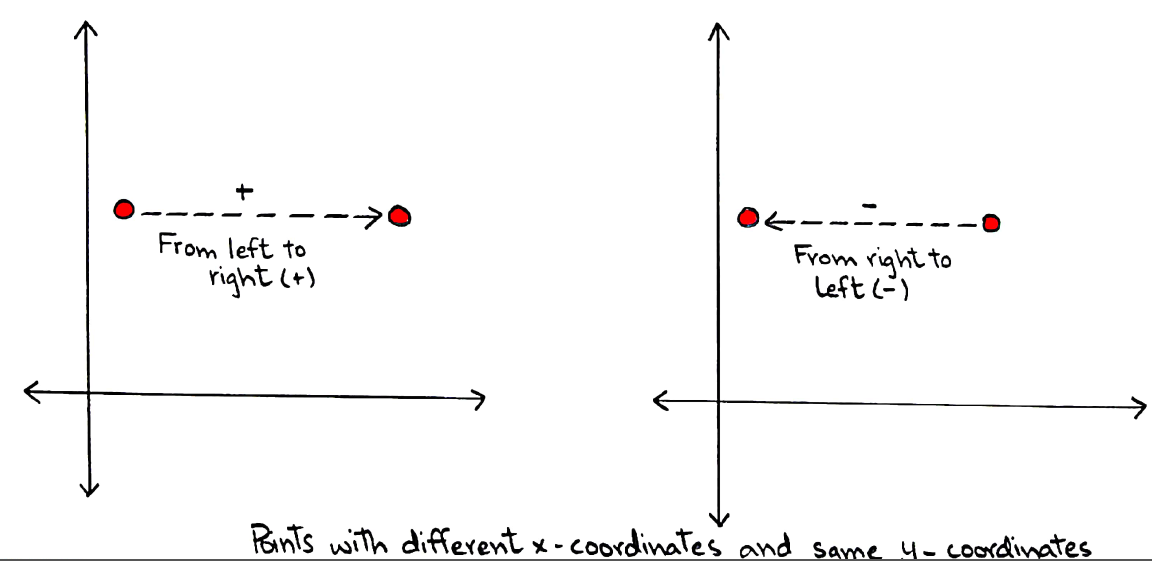 +
From left to
right (+)
-
From right to
left (-)
Points with different x-coordinates and same y-coordinates